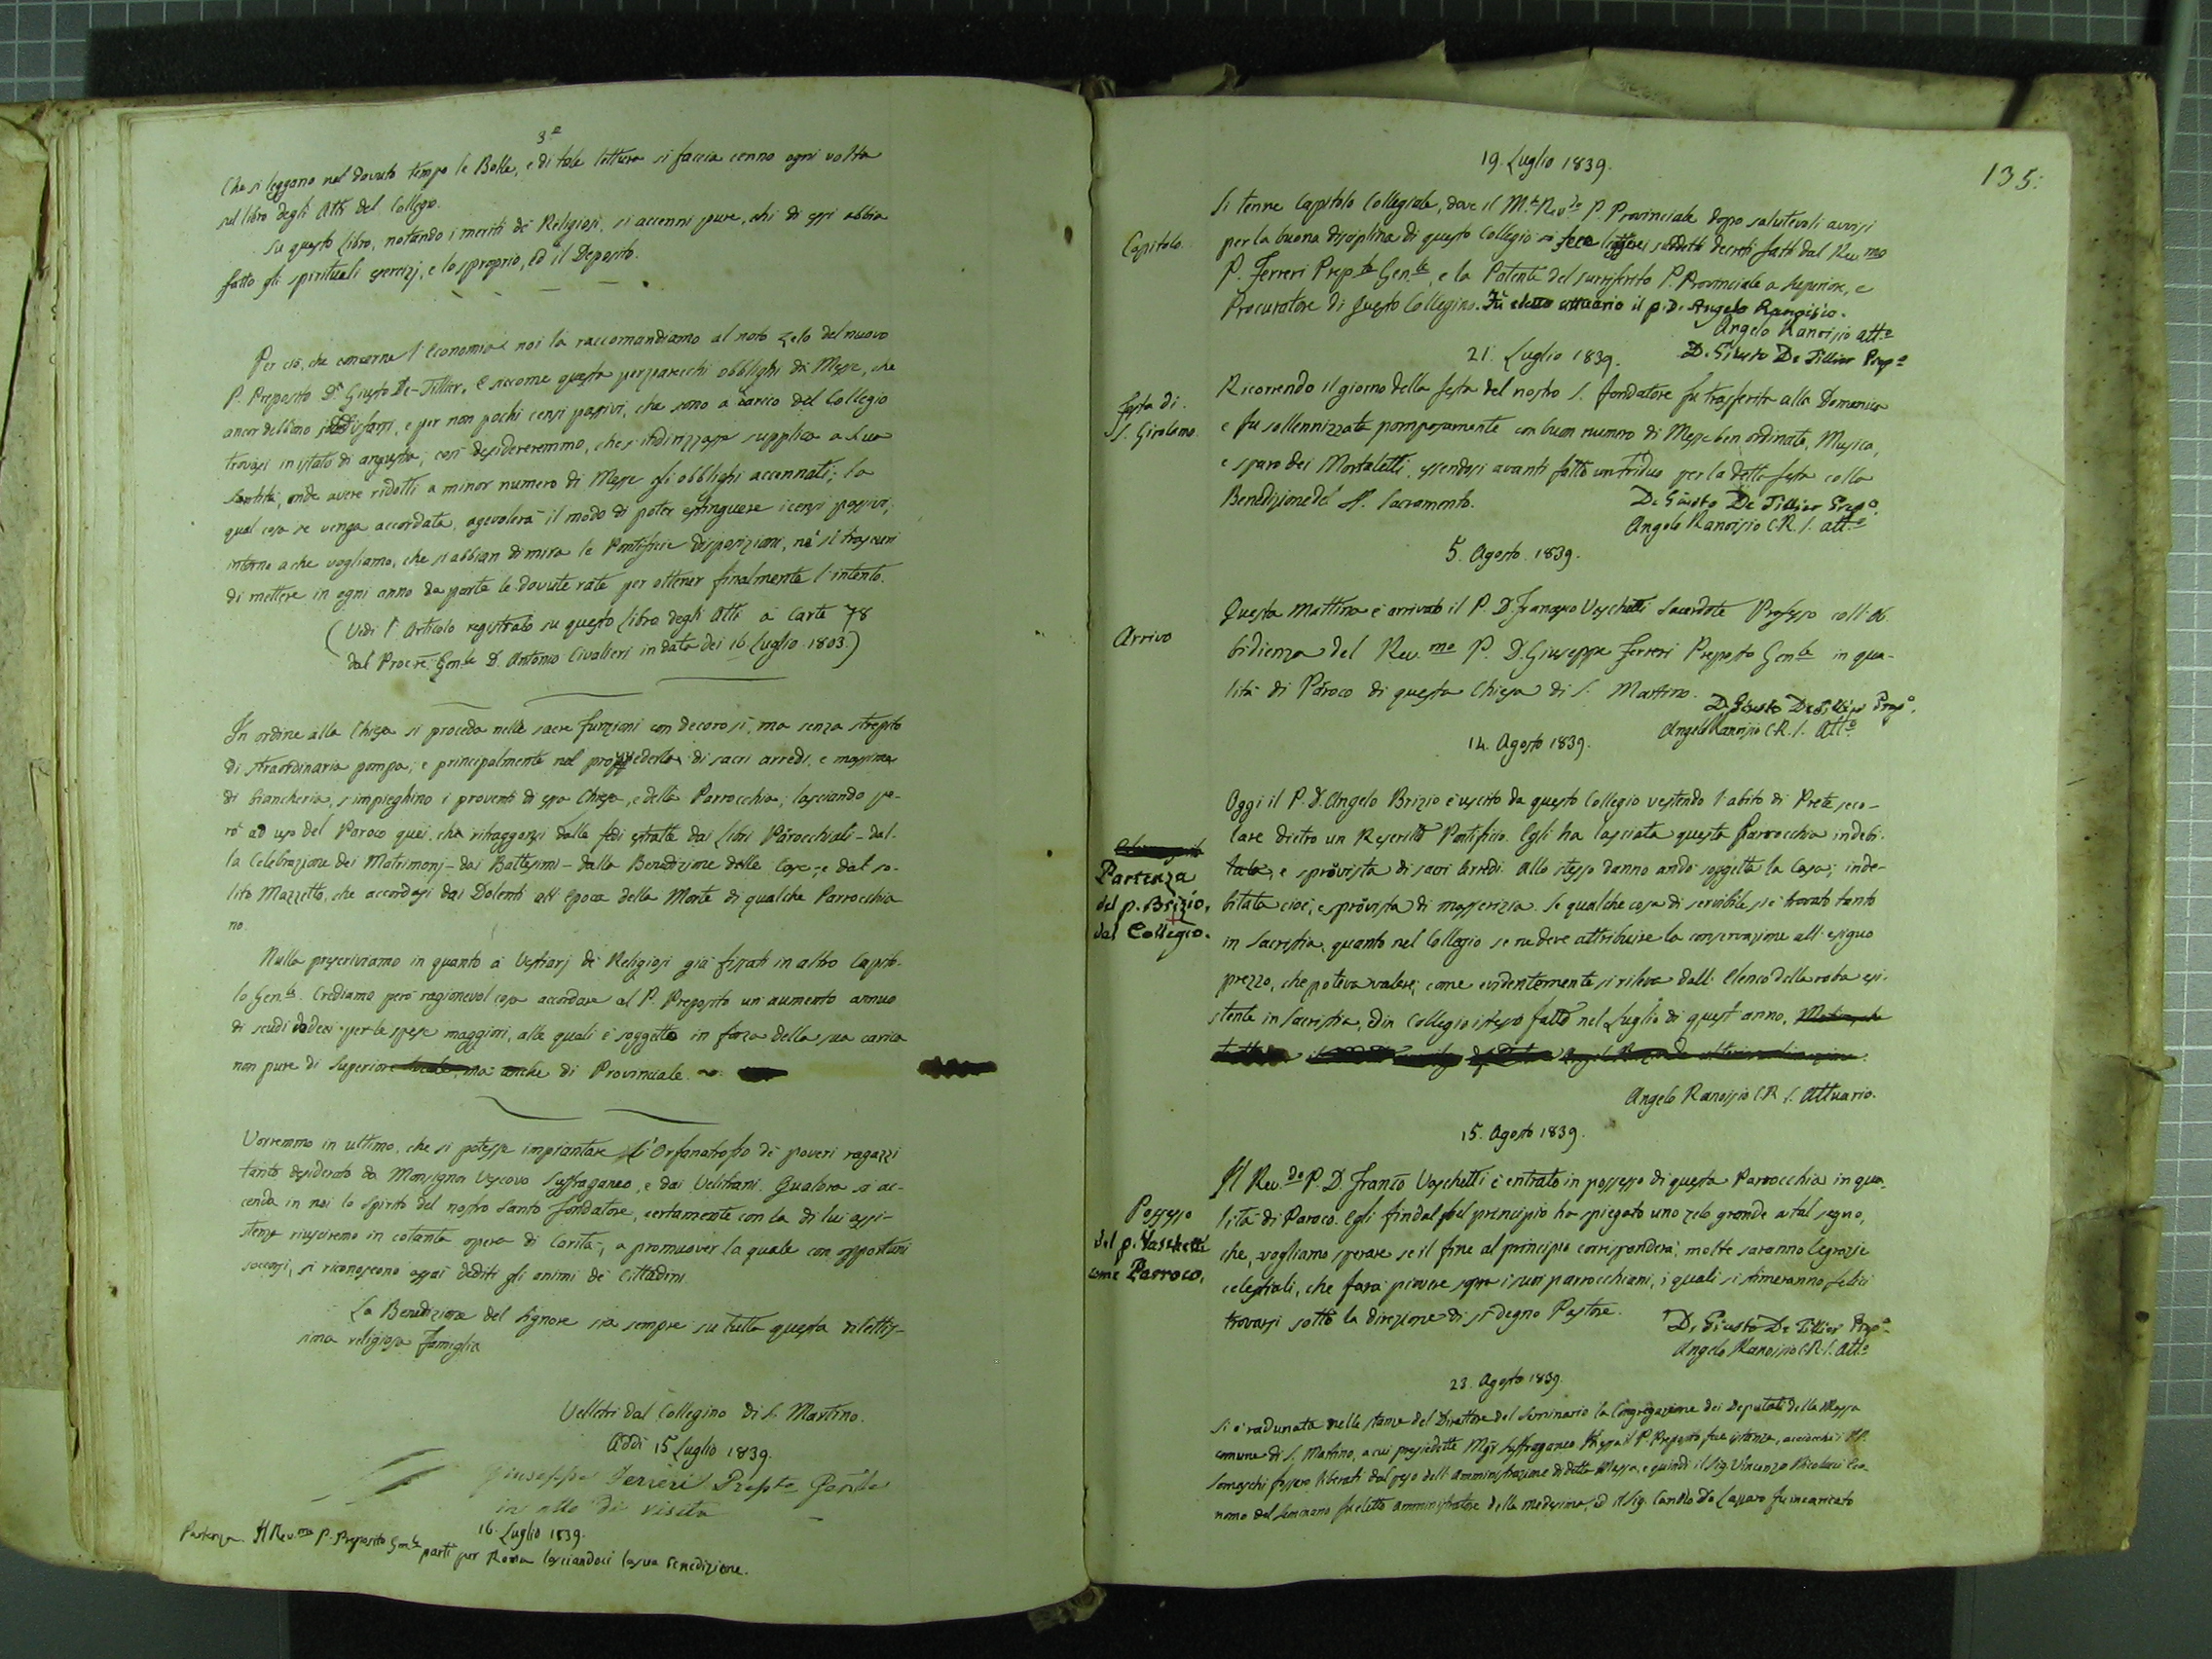 3º
Che si leggano nel dovuto tempo le Bolle, e di tale lettura si faccia cenno ogni volta
sul libro degli Atti del Collegio.
Su questo Libro, notando i meriti de' Religiosi, si accenni pure, chi di essi abbia
fatto gli spirituali esercizj, e lo sproprio, ed il Deposito.
Per ciò, che concerne l'Economia noi la raccomandiamo al noto zelo del nuovo
P. Preposito Dn Giusto De-Tillier. E siccome questa per parecchi obblighi di Messe, che
ancor debbono soddisfarsi, e per non pochi censi passivi, che sono a carico del Collegio
trovasi in istato di angustia; così desidereremmo, che s'indirizzasse supplica a Sua
Santità, onde avere ridotti a minor numero di Messe gli obblighi accennati; la
qual cosa se venga accordata, agevolerà il modo di poter estinguere i censi passivi;
intorno a che vogliamo, che si abbian di mira le Pontificie disposizioni, nè si trascuri
di mettere in ogni anno da parte le dovute rate per ottener finalmente l'intento.
(Vedi l'Articolo registrato su questo Libro degli Atti a Carte 78
dal Procre. Genle D. Antonio Civalieri in data dei 16 Luglio 1803.)
In ordine alla Chiesa si proceda nelle sacre funzioni con decoro sì, ma senza strepito
di straordinaria pompa; e principalmente nel provvederla di sacri arredi, e massime
di biancheria, s'impieghino i proventi di essa Chiesa, e della Parrocchia; lasciando pe-
rò ad uso del Paroco quei, che ritraggonsi dalle fedi estratte dai Libri Parocchiali - dal-
la Celebrazione dei Matrimonj - dai Battesimi - dalla Benedizione delle Case - e dal so-
lito Mazzetto, che accordasi dai Dolenti all'epoca della Morte di qualche Parrocchia
no.
Nulla prescriviamo in quanto a' Vestiarj de' Religiosi già fissati in altro Capito-
lo Genle. Crediamo però ragionevol cosa accordare al P. Preposito un aumento annuo
di scudi dodeci per le spese maggiori, alle quali è soggetto in forza della sua carica
non pure di Superiore ma anche di Provinciale.
Vorremmo in ultimo, che si potesse impiantare l'Orfanatrofio de' poveri ragazzi
tanto desiderato da Monsignor Vescovo Suffraganeo, e dai Veliterni. Qualora si ac-
cenda in noi lo Spirito del nostro Santo fondatore, certamente con la di lui assi-
stenza riusciremo in cotanta opera di Carità, a promuover la quale con opportuni
soccorsi, si riconoscono assai dediti gli animi de' Cittadini.
La Benedizione del Signore sia sempre su tutta questa dilettis-
sima religiosa famiglia
Velletri dal Collegino di S. Martino.
Addì 15 Luglio 1839.
Giuseppe Ferreri Prepto Genle
in atto di visita
16. Luglio 1839.
Partenza. Il Rev.mo P. Preposito Genle partì per Roma lasciandoci la sua benedizione.
135.
19. Luglio 1839.
Capitolo.
Si tenne Capitolo Collegiale, dove il M.to Rev.do P. Provinciale dopo salutevoli avvisi
per la buona disciplina di questo Collegio fece leggere i suddetti decreti fatti dal Rev.mo
P. Ferreri Prepto Genle, e la Patente del surriferito P. Provinciale a Superiore, e
Procuratore di questo Collegino. Fù eletto attuario il p. D. Angelo Ranoisio.
Angelo Ranoisio Att.o
D. Giusto De Tillier Prep.o
21. Luglio 1839.
Festa di
S. Girolamo.
Ricorrendo il giorno della festa del nostro S. fondatore fu trasferita alla Domenica
e fu sollennizzata pomposamente con buon numero di Messe ben ordinate, Musica,
e sparo dei Mortaletti, essendosi avanti fatto un Triduo per la detta festa colla
Benedizione del SS. Sacramento.
D. Giusto De Tillier Prep.o
Angelo Ranoisio C.R.S. Att.o
5. Agosto 1839.
Arrivo
Questa mattina è arrivato il P. D. Francesco Vaschetti Sacerdote Professo coll'Ob-
bidienza del Rev.mo P. D. Giuseppe Ferreri Preposto Genle in qua-
lità di Paroco di questa Chiesa di S. Martino.
D. Giusto De Tillier Prep.o
Angelo Ranoisio C.R.S. Att.o
14. Agosto 1839.
Partenza
del p. Brizio,
dal Collegio.
Oggi il P. D. Angelo Brizio è uscito da questo Collegio vestendo l'abito di Prete seco-
lare dietro un Rescritto Pontificio. Egli ha lasciata questa Parrocchia indebi-
tata, e sprovista di sacri arredi. Allo stesso danno andò soggetta la Casa; inde-
bitata cioè, e sprovista di masserizia. Se qualche cosa di servibile si è trovato tanto
in Sacristia, quanto nel Collegio se ne deve attribuire la conservazione all'esiguo
prezzo, che poteva valere; come evidentemente si rileva dall'Elenco della roba esi-
stente in Sacristia, ed in Collegio istesso fatto nel Luglio di quest'anno.
Angelo Ranoisio C.R.S. Attuario.
15. Agosto 1839.
Possesso
del p. Vaschetti
come Parroco.
Il Rev.do P. D. Franco Vaschetti è entrato in possesso di questa Parrocchia in qua-
lità di Paroco. Egli fin dal bel principio ha spiegato uno zelo grande a tal segno,
che, vogliamo sperare se il fine al principio corrisponderà, molte saranno le grazie
celestiali, che farà piovere sopra i suoi parrocchiani, i quali si stimeranno felici
trovarsi sotto la direzione di sì degno Pastore.
D. Giusto De Tillier Prep.o
Angelo Ranoisio C.R.S. Att.o
23. Agosto 1839.
Si è radunata nelle stanze del Direttore del Seminario la Congregazione dei Deputati della Massa
comune di S. Martino, a cui presiedette Mgr Suffraganeo. Il P. Preposto fece istanza, acciocchè i PP.
Somaschi fossero liberati dal peso dell'amministrazione di detta Massa, e quindi il Sig. Vincenzo Nicolucci Eco-
nomo del Seminario fu eletto amministratore della medesima, ed il Sig. Candido De Lazzaro fu incaricato